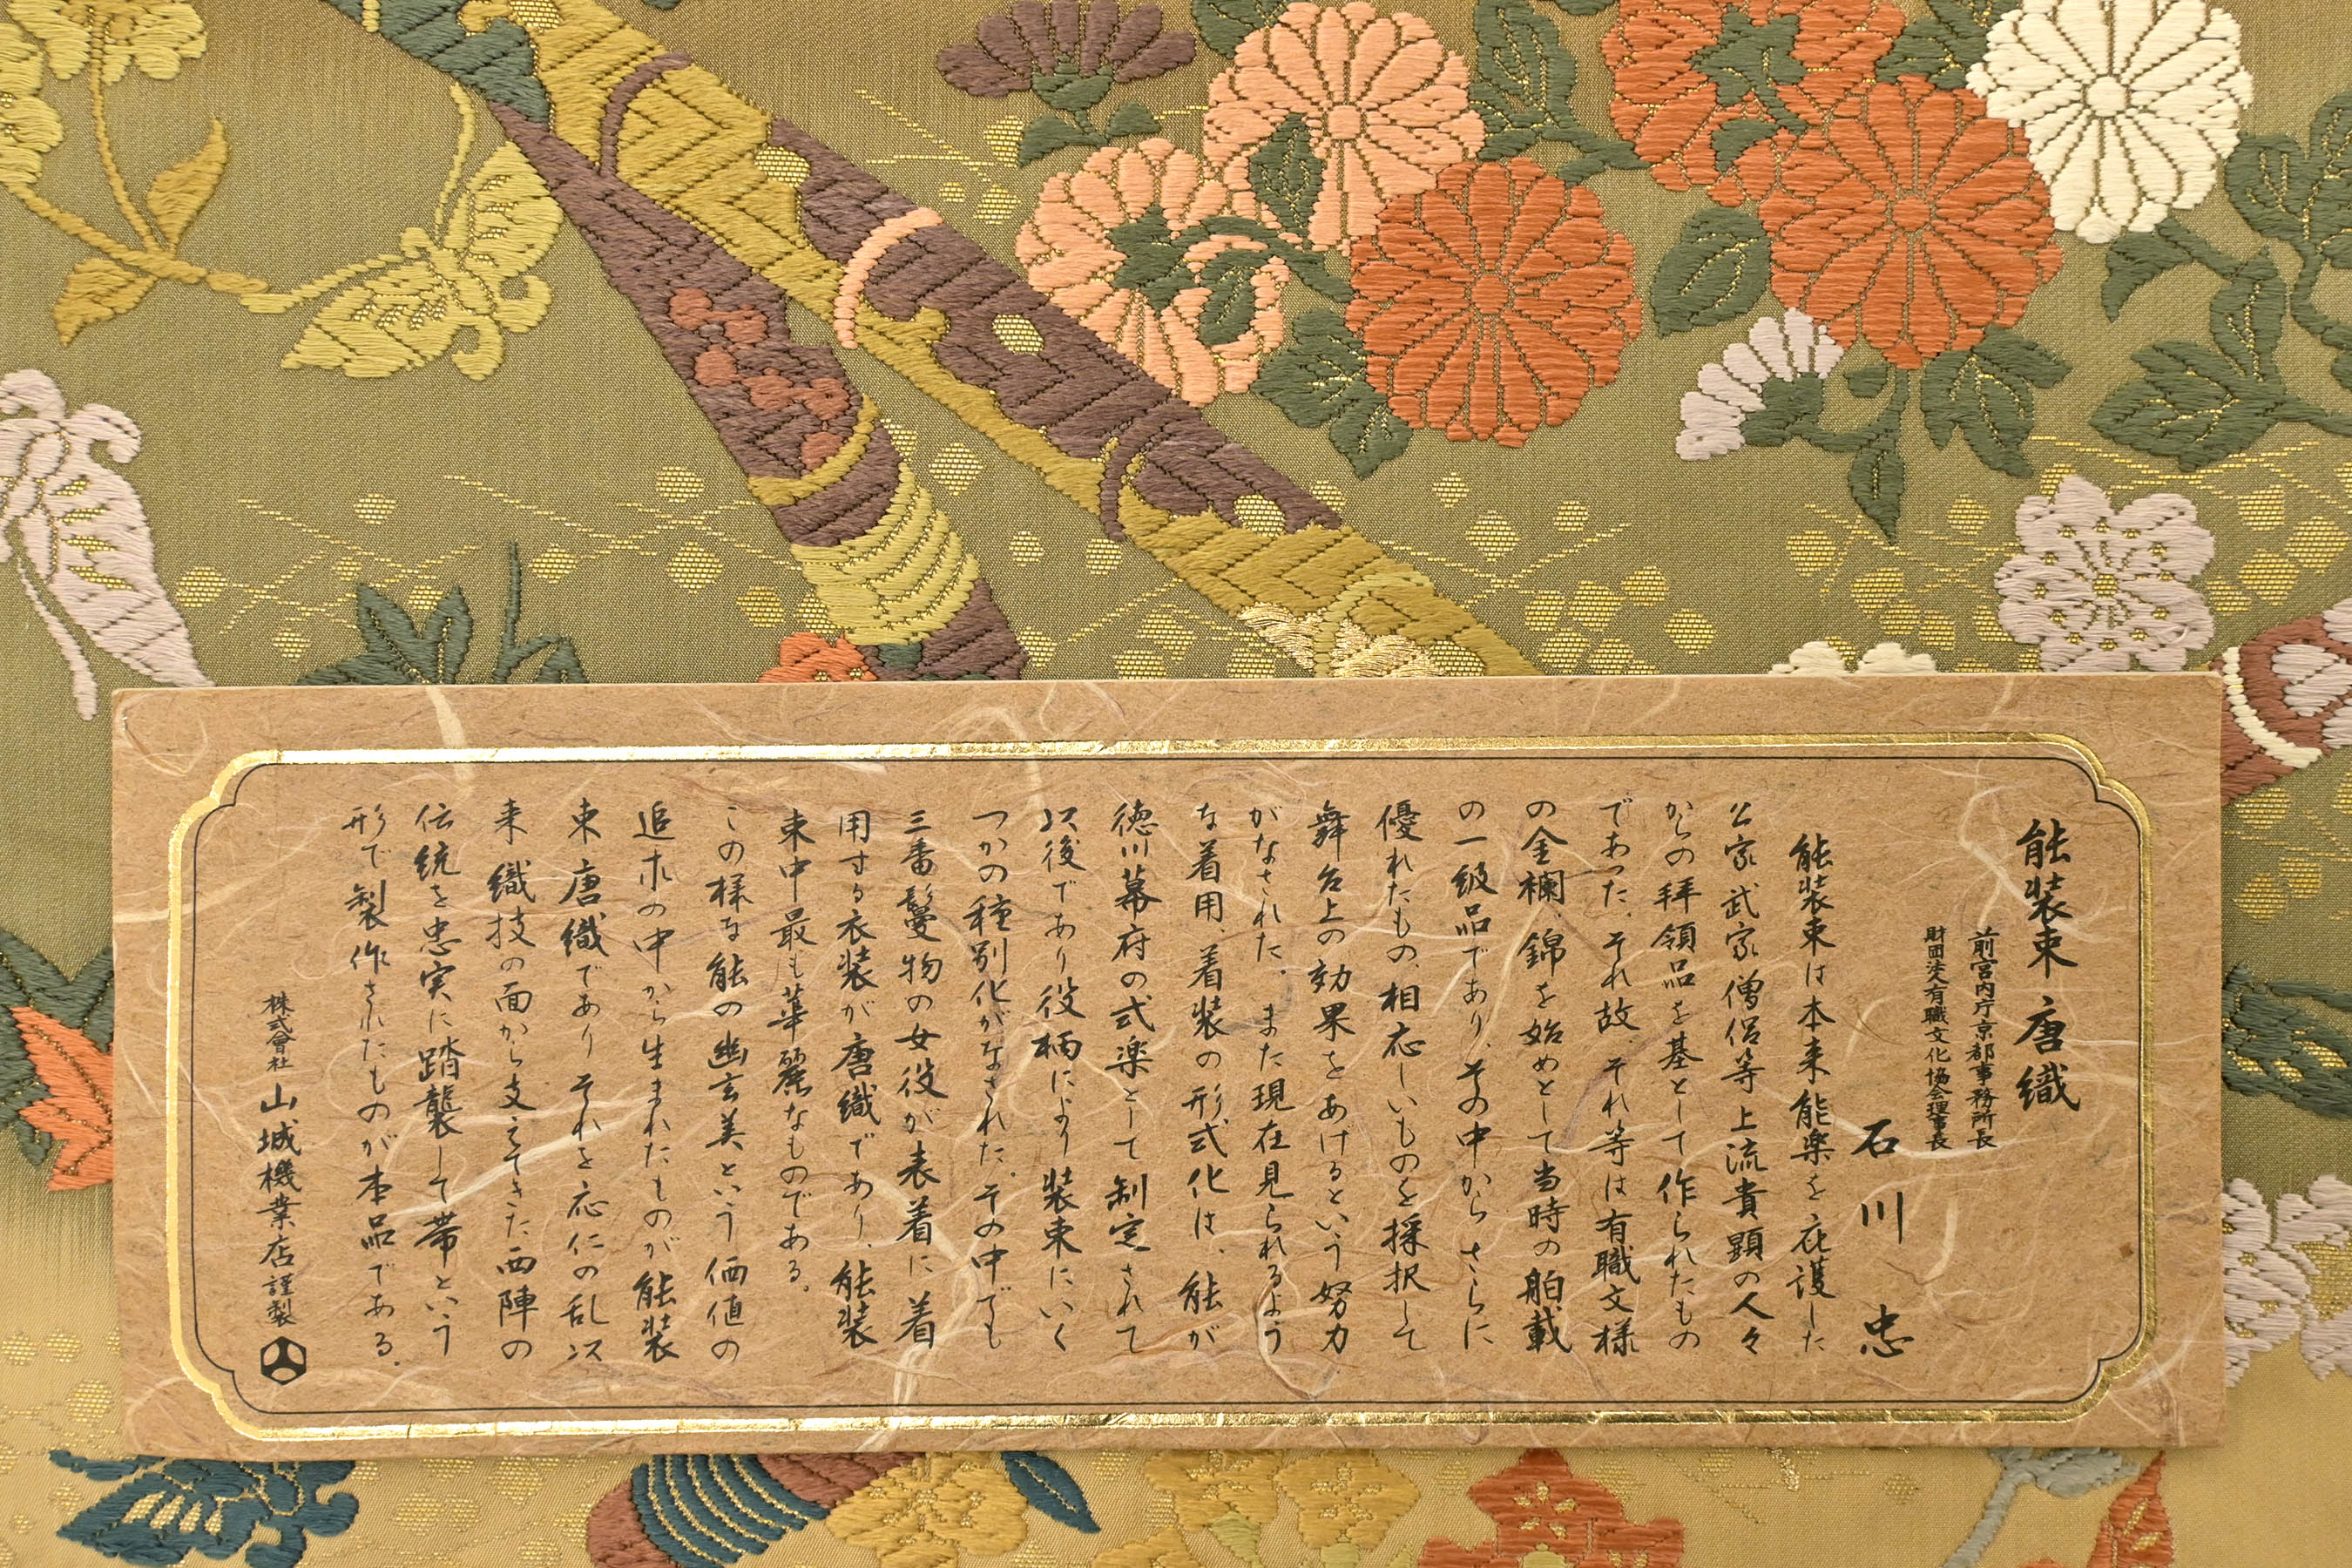 能装束 唐織
前宮内庁京都事務所長
財団法人有職文化協会理事長
石川 忠
能装束は本来能楽を庇護した
公家武家僧侶等上流貴顕の人々
からの拝領品を基として作られたもの
であった。それ故、それ等は有職文様
の金襴、錦を始めとして当時の舶載
の一級品であり、その中からさらに
優れたもの、相応しいものを採択して
舞台上の効果をあげるという努力
がなされた。また現在見られるよう
な着用、着装の形式化は、能が
徳川幕府の式楽として制定されて
以後であり役柄により装束にいく
つかの種別化がなされた。その中でも
三番鬘物の女役が表着に着
用する衣装が唐織であり、能装
束中最も華麗なものである。
この様な能の幽玄美という価値の
追求の中から生まれたものが能装
束唐織でありそれを応仁の乱以
来織技の面から支えてきた西陣の
伝統を忠実に踏襲して帯という
形で製作されたものが本品である。
株式會社 山城機業店 謹製